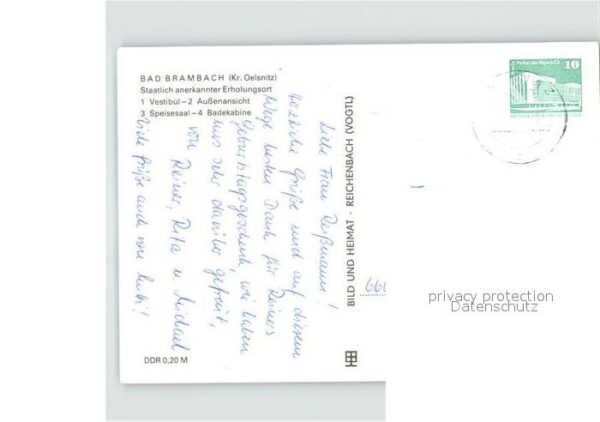 BAD BRAMBACH (Kr. Oelsnitz)
Staatlich anerkannter Erholungsort
1 Vestibül – 2 Außenansicht
3 Speisesaal – 4 Badekabine
Liebe Frau Reßmann!
Herzliche Grüße und auf diesem
Wege besten Dank für Reiners
Geburtstagsgeschenk, wir haben
uns sehr darüber gefreut,
von Reiner, Rita u. Michael
Viele Grüße auch von Mutti!
DDR 0,20 M
BILD UND HEIMAT · REICHENBACH (VOGTL)
10
660
privacy protection
Datenschutz